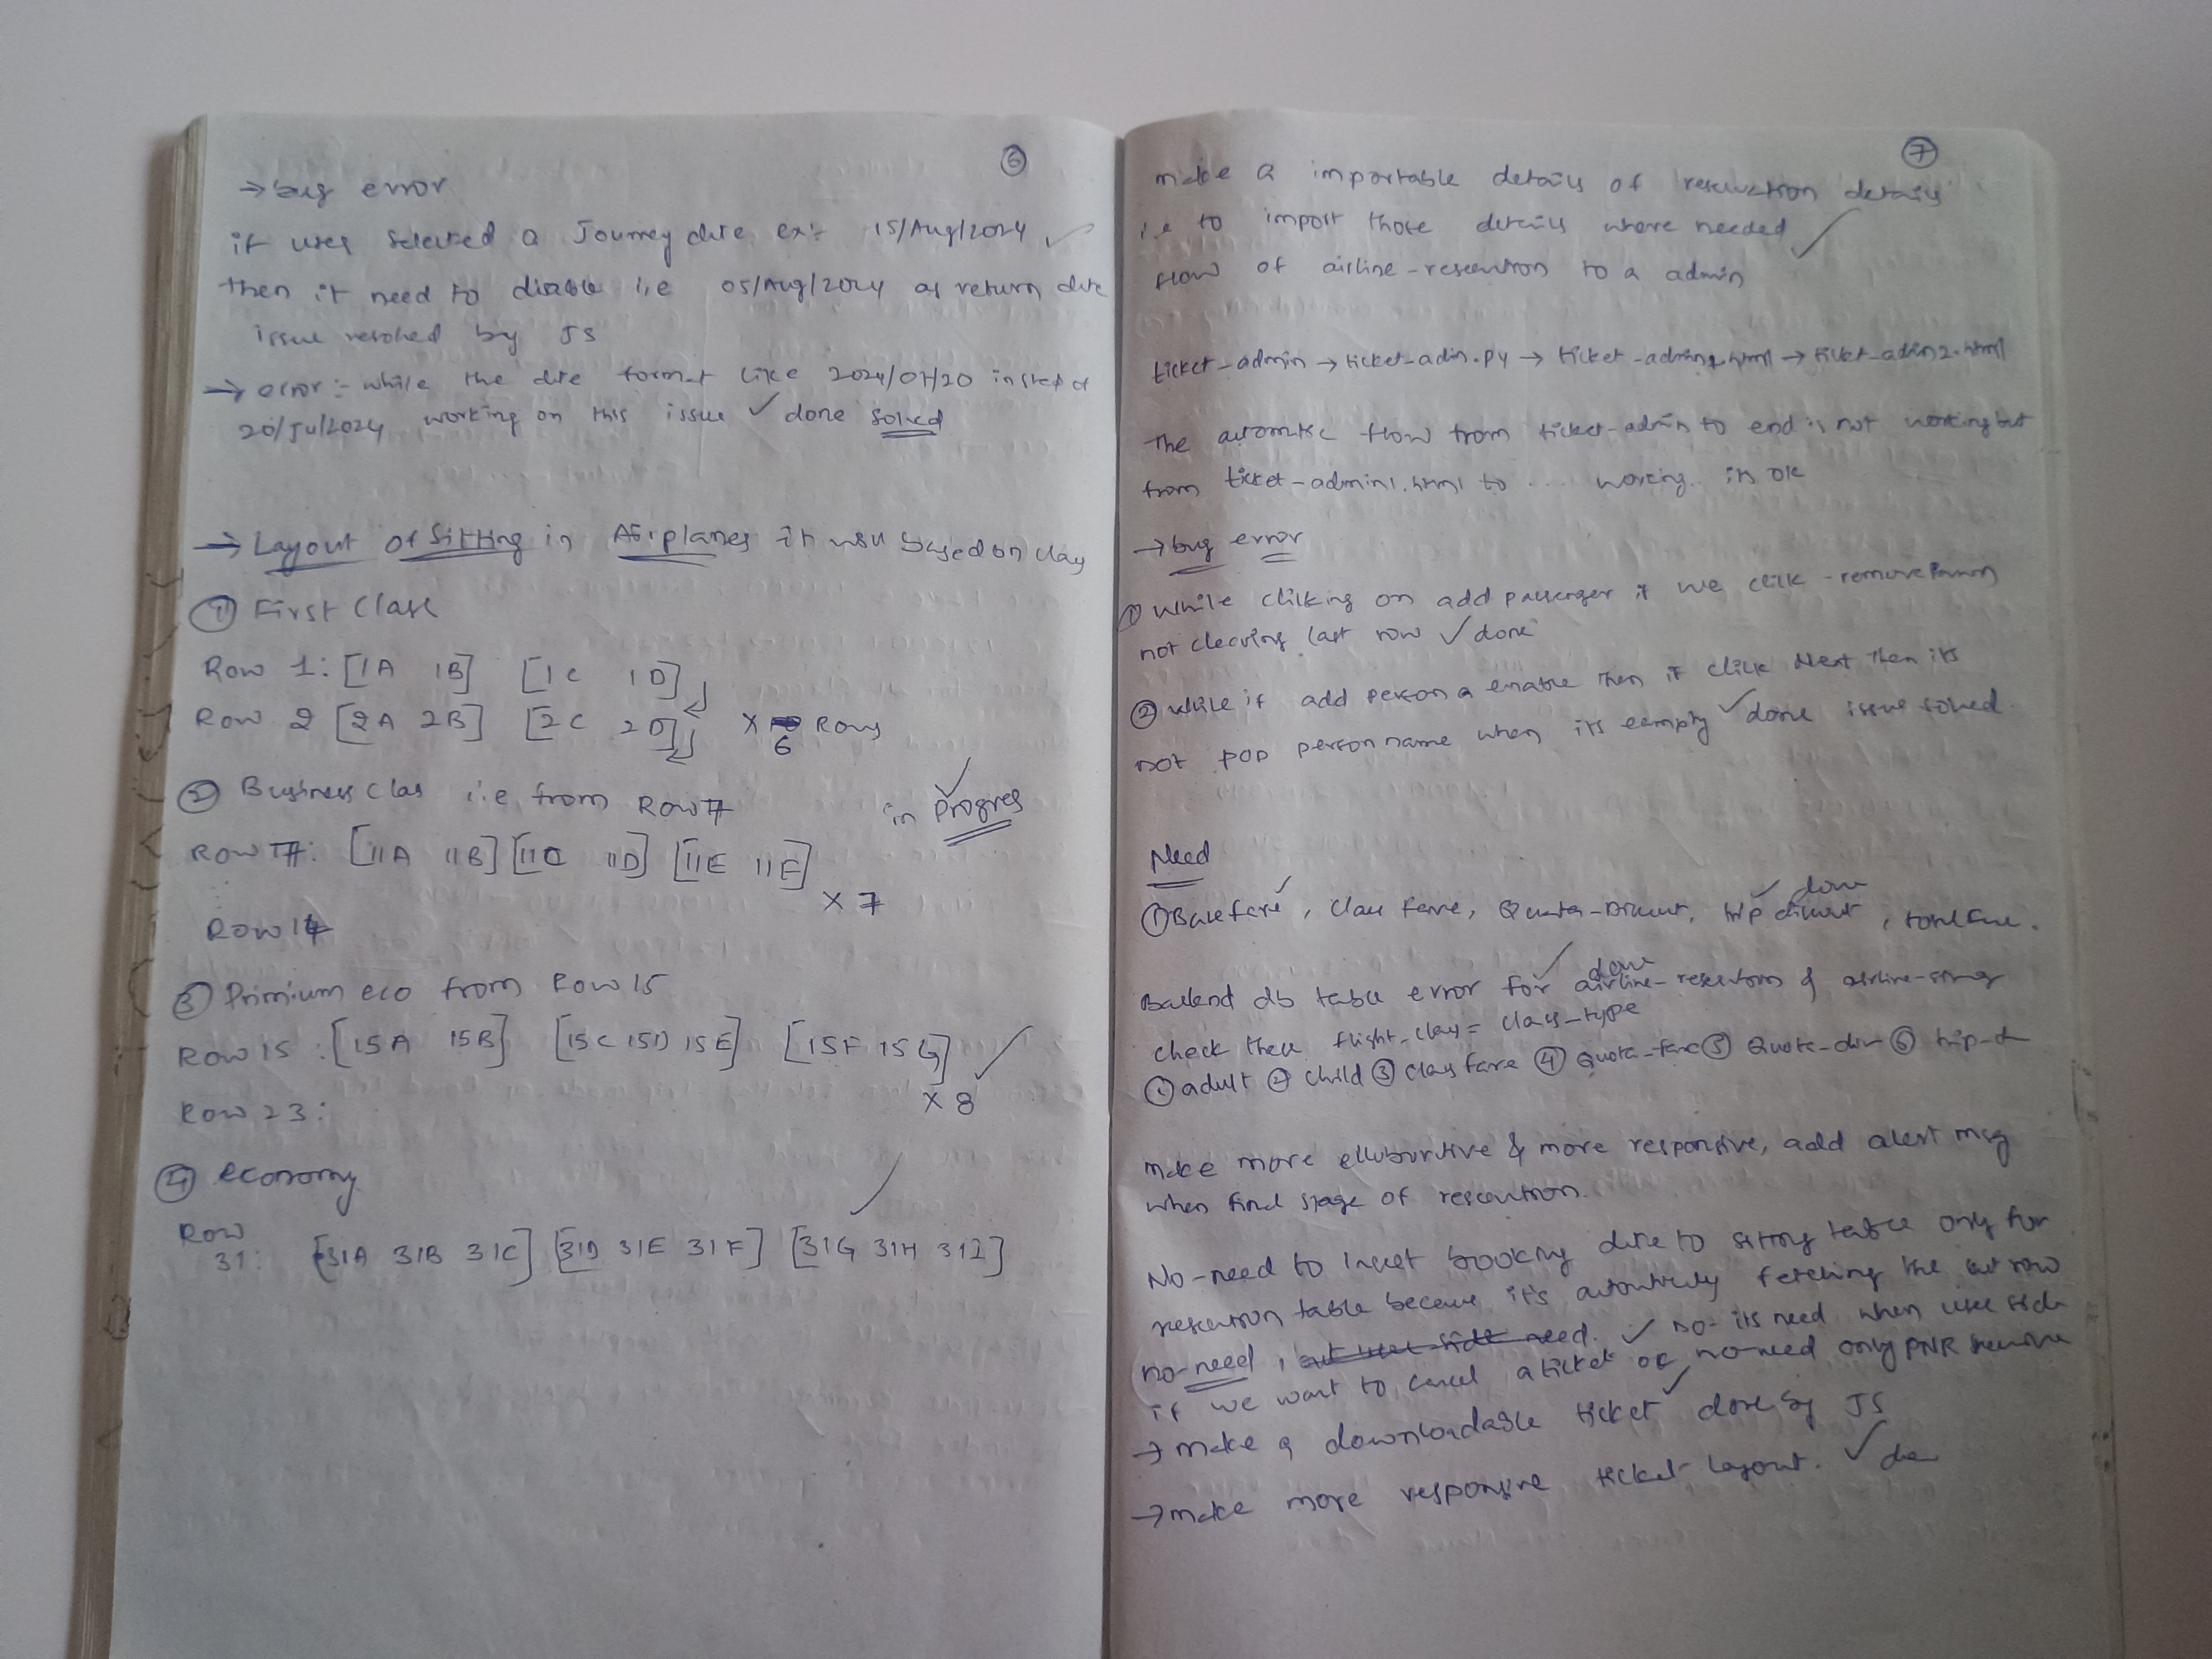 6
→ bug error
if user selected a Journey date ex:- 15/Aug/2024 ✓
then it need to disable i.e 05/Aug/2024 as return date
issue resolved by JS
→ error :- while the date format like 2024/07/20 instead of
20/Jul/2024 working on this issue ✓ done solved
→ Layout of Sitting in Airplanes
① First Class
Row 1: [1A 1B] [1C 1D]
Row 2 [2A 2B] [2C 2D] x 6 Rows
② Business Clas i.e from Row 7
in progres
Row 7: [11A 11B] [11C 11D] [11E 11F]
x 7
Row 14
③ Primium eco from Row 15
Row 15 : [15A 15B] [15C 15D 15E] [15F 15G] ✓
x 8
Row 23 :
④ economy
Row
31: [31A 31B 31C] [31D 31E 31F] [31G 31H 31I]
7
make a importable details of reservation details
i.e to import those details where needed ✓
flow of airline-reservation to a admin
ticket-admin → ticket-admin.py → ticket-admin1.html → ticket-admin2.html
The automatic flow from ticket-admin to end is not working but
from ticket-admin1.html to ... working. in ok
→ bug error
① while cliking on add passenger if we click -remove Person
not clearing last row ✓ done
② while if add person a enable then if click Next then its
not pop person name when its eampty ✓ done issue solved.
Need
① Basefare, class fare, Quota-Discount, trip discount, total fare.
done
Backend db table error for airline-resevtions &
done
check them flight_class = class_type
① adult ② child ③ class fare ④ Quota-fare ⑤ Quota-dis ⑥ trip-d
make more elloboritive & more responsive, add alert msg
when final stage of reservation.
No-need to Insert booking date to sitting table only for
reservtion table because its automticaly fetching the row
no need, but that side need. ✓ no- its need when user
if we want to cancel a ticket ok, no need only PNR
→ make a downloadable ticket done by JS
→ make more responsive ticket layout. ✓ done